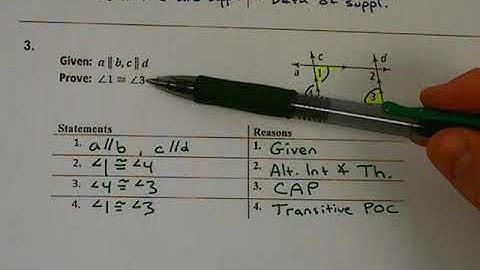 of suppl.
3.
Given: a ∥ b, c ∥ d
Prove: ∠1 ≅ ∠3
a c d
1 2
3
Statements Reasons
1. a//b , c//d 1. Given
2. ∠1 ≅ ∠4 2. Alt. Int ∡ Th.
3. ∠4 ≅ ∠3 3. CAP
4. ∠1 ≅ ∠3 4. Transitive POC